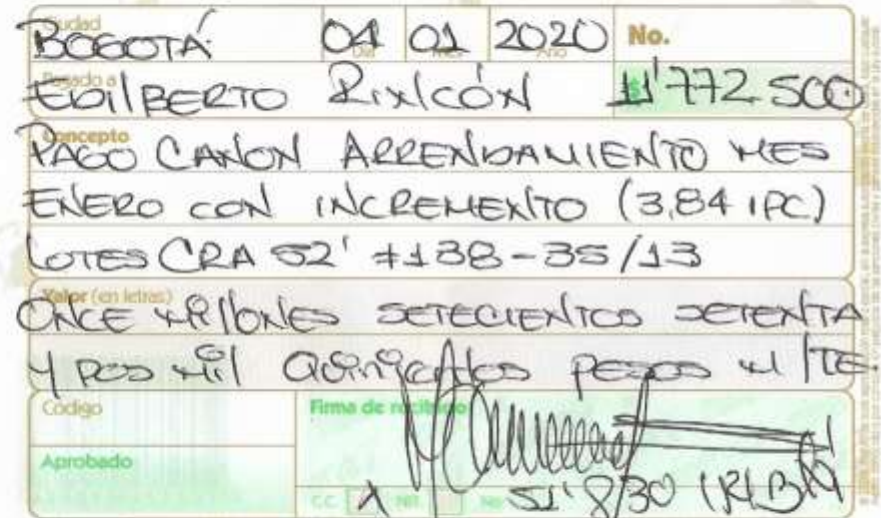 Ciudad
BOGOTÁ: 04 01 2020 No.
Día Mes Año
Pagado a
EDILBERTO RINCÓN $ 11'772.500
Concepto
PAGO CANON ARRENDAMIENTO MES
ENERO CON INCREMENTO (3,84 IPC)
LOTES CRA 52' #138-35/13
Valor (en letras)
ONCE MILLONES SETECIENTOS SETENTA
Y DOS MIL QUINIENTOS PESOS M/TE.
Código Firma de recibido
Aprobado
C.C. X NIT. No